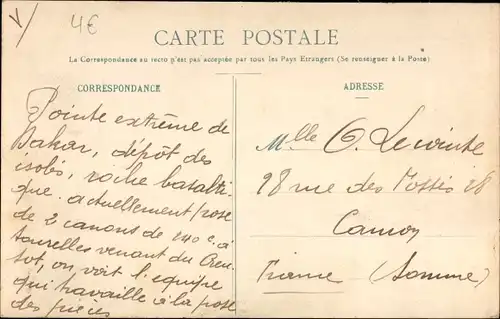 4€
CARTE POSTALE
La Correspondance au recto n'est pas acceptée par tous les Pays Etrangers (Se renseigner à la Poste)
CORRESPONDANCE
Pointe extrême de
Dakar, dépôt des
isolés, roche basalti-
que. actuellement pose
de 2 canons de 240 c. à
tourelles venant du Creu-
sot, on voit l'équipe
qui travaille à la pose
des pièces
ADRESSE
Mlle G. Lecointe
98 rue des
Camon
France (Somme)